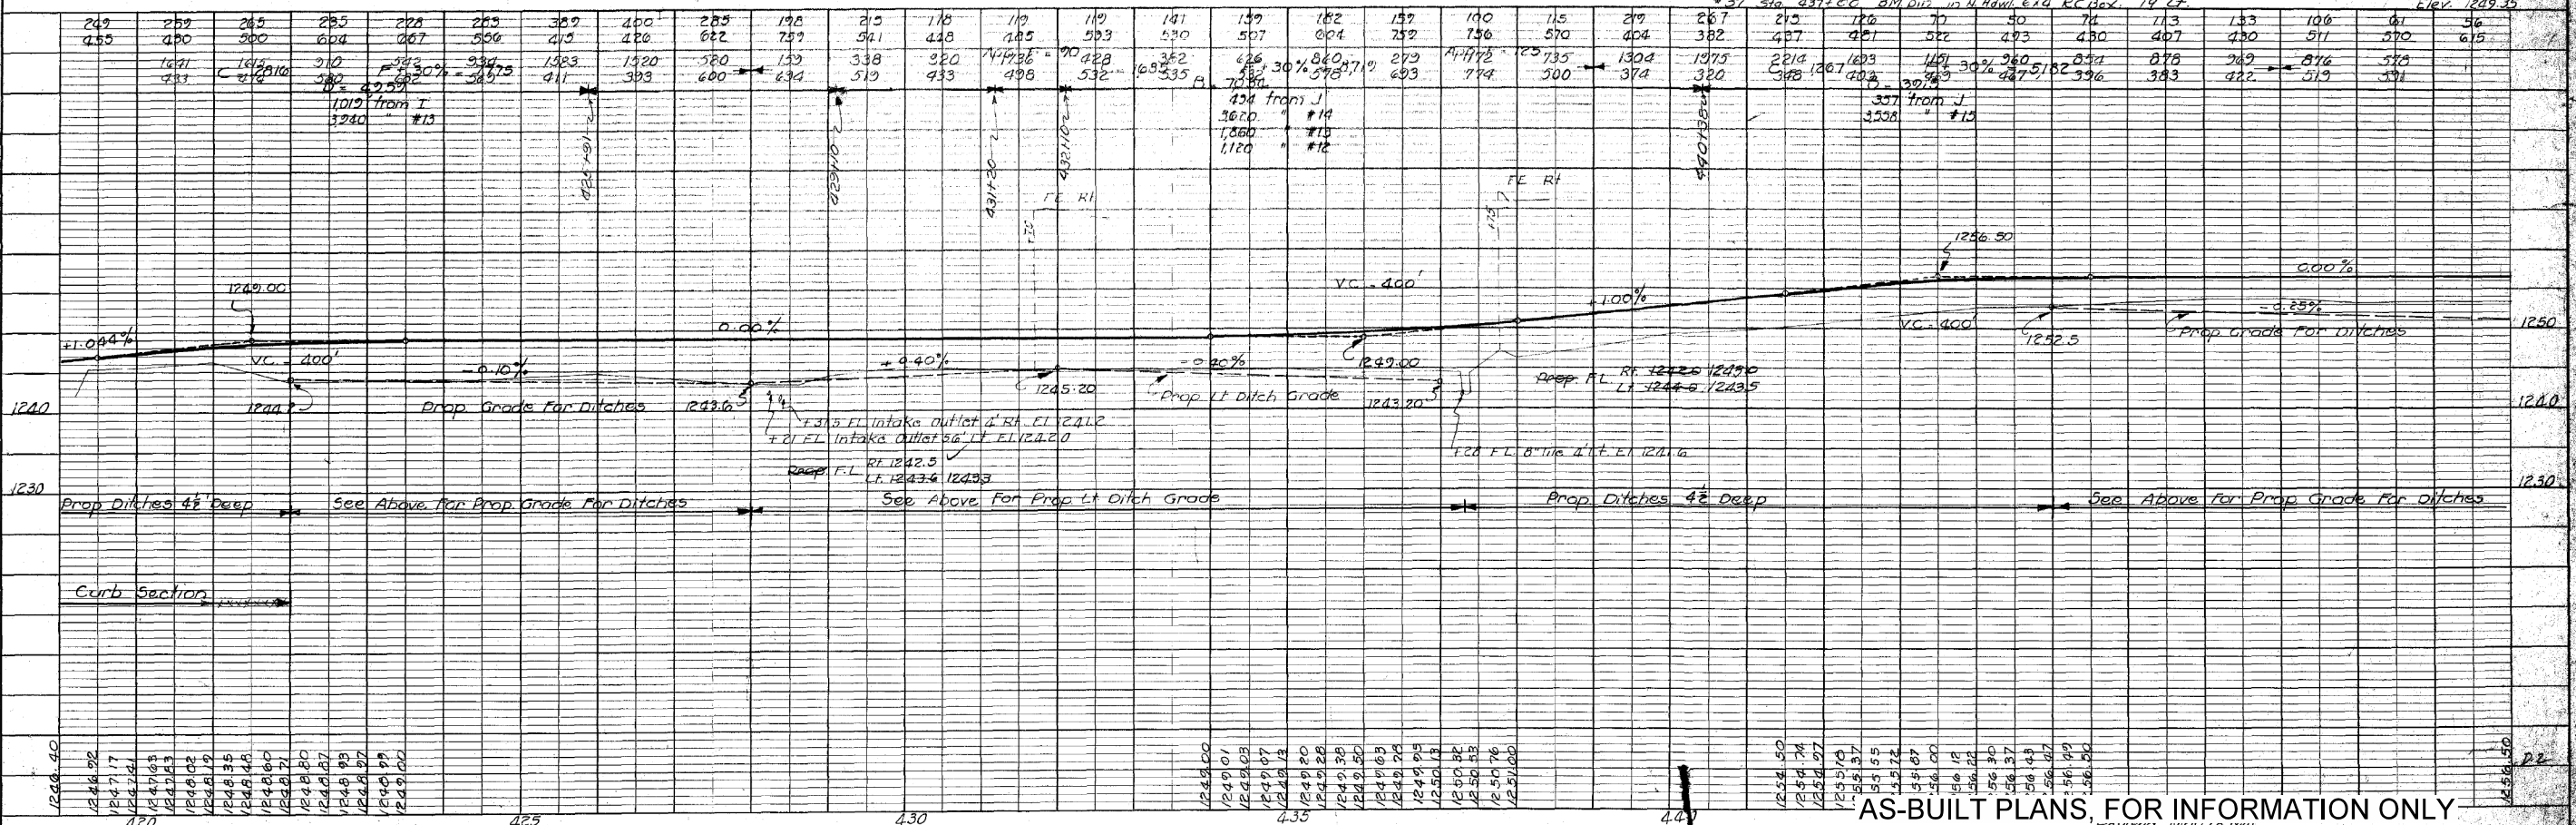 #37 Sta. 437+00 BM Disc in N. Hdwl. 6x4 RC Box. 79' Lt. Elev. 1249.35
249 259 265 295 228 283 389 400 285 198 215 178 119 119 141 159 182 159 100 115 219 267 215 126 77 50 74 113 133 106 61 56
455 480 500 604 667 556 415 426 622 759 541 448 485 593 530 507 604 759 756 570 404 382 437 481 522 493 430 407 430 511 570 615
1641 1613 910 542 934 1583 1520 580 159 338 920 428 352 626 860 279 735 1304 1975 2214 1693 1151 960 854 878 969 876 578
411 393 600 694 519 433 498 532 535 578 693 774 500 374 320 348 403 467 396 383 422 519
F + 30% = 7,775
App't = 90
+ 30% 8,719
App't = 125
+ 30% = 5,182
B = 4,959
1,019 from I
3,940 " #13
434 from J
3,620 " #14
1,860 " #13
1,120 " #12
357 from J
3,558 " #15
425+91
429+10
431+20
432+10
440+38
FE Rt
+75
FE Rt
+75
1256.50
VC - 400'
0.00%
1249.00
+1.00%
-0.25%
0.00%
+1.044%
VC - 400'
VC - 400'
1252.5
Prop Grade For Ditches
1250
-0.10%
+0.40%
-0.40%
1249.00
1245.20
Prop Lt Ditch Grade
1243.20
Prop. FL Rt. 1242.0 1243.0
Lt 1244.0 1243.5
1240
Prop. Grade For Ditches
1243.6
1240
+315 FL Intake outlet 4' Rt. El 1241.2
+21 FL Intake Outlet 56' Lt. El 1242.0
Prop F.L. Rt. 1242.5
Lt. 1243.6 1243.3
+28 FL 8" Tile 4' Lt. El 1241.6
1230
1230
Prop Ditches 4½' Deep
See Above For Prop. Grade For Ditches
See Above For Prop Lt Ditch Grade
Prop. Ditches 4½' Deep
See Above For Prop Grade For Ditches
Curb Section
1246.40
1246.92
1247.17
1247.41
1247.63
1247.83
1248.02
1248.19
1248.35
1248.48
1248.60
1248.71
1248.80
1248.87
1248.93
1248.97
1248.99
1249.00
1249.00
1249.01
1249.03
1249.07
1249.13
1249.20
1249.28
1249.38
1249.50
1249.63
1249.78
1249.95
1250.13
1250.32
1250.53
1250.76
1251.00
1254.50
1254.74
1254.97
1255.18
1255.37
1255.55
1255.72
1255.87
1256.00
1256.12
1256.22
1256.30
1256.37
1256.43
1256.47
1256.49
1256.50
1256.50
D2
420
425
430
435
440
AS-BUILT PLANS, FOR INFORMATION ONLY